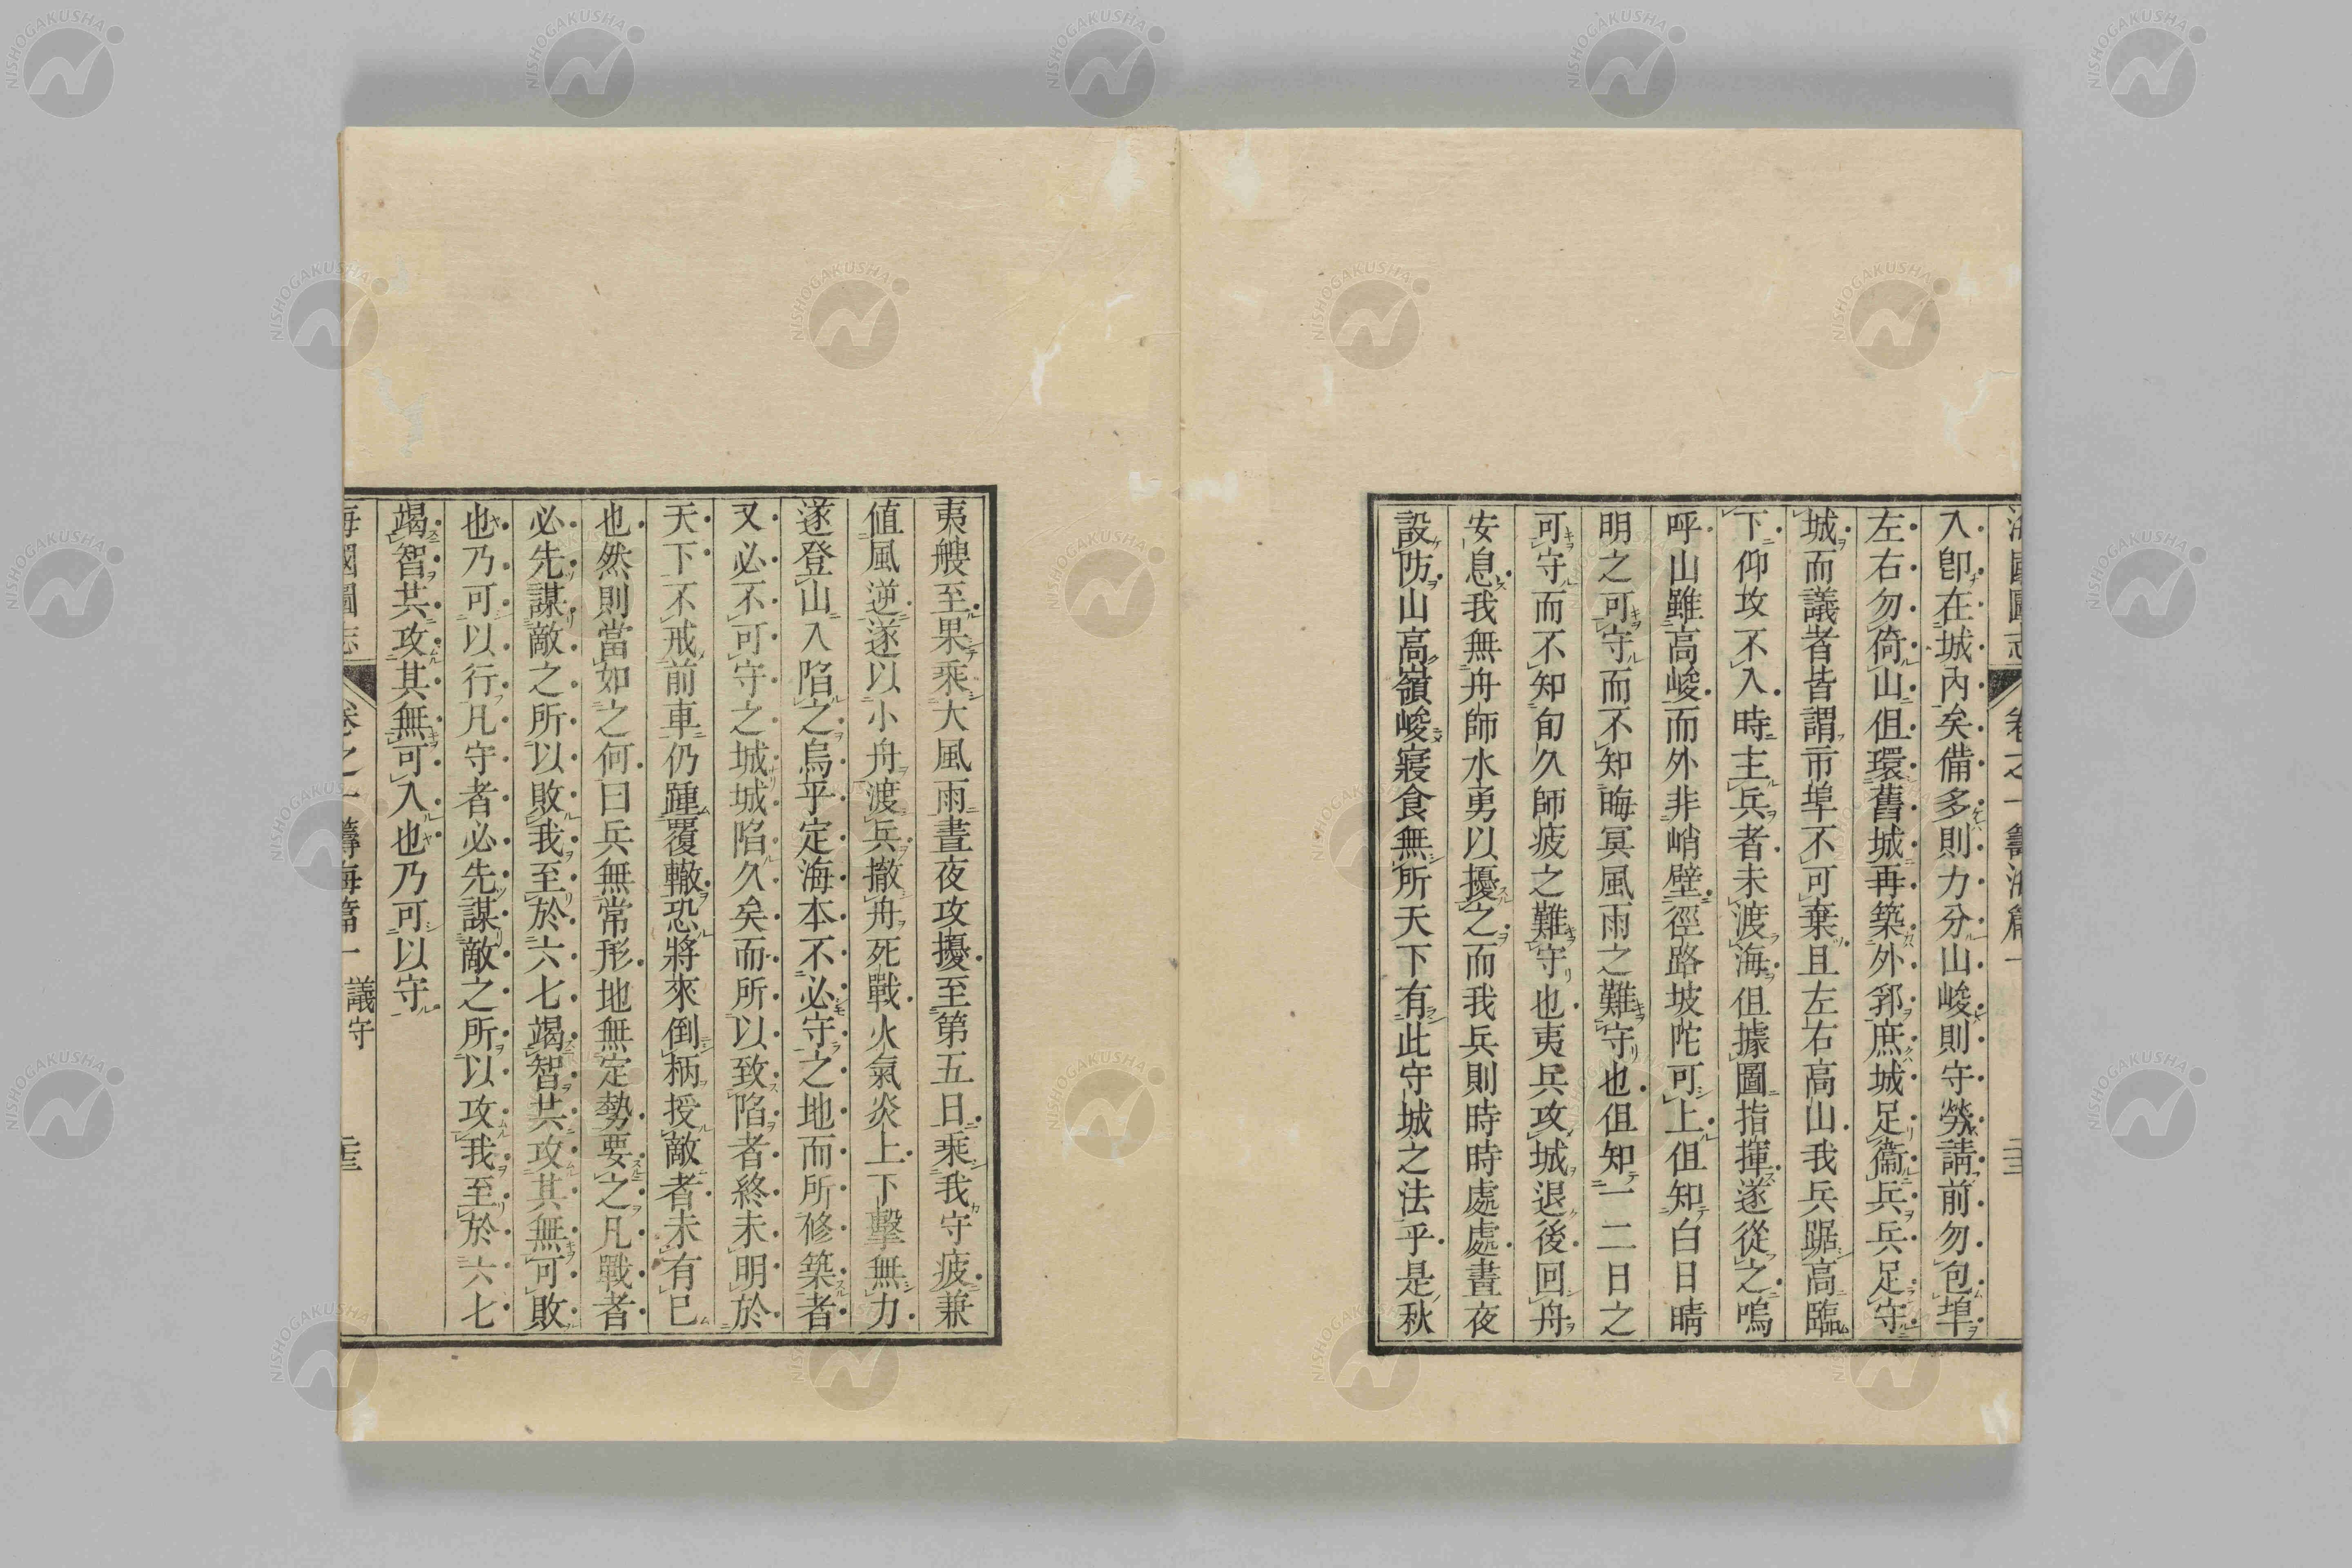 海國圖志 卷之一 籌海篇一
入卽在城內矣備多則力分山峻則守勞請前勿包埠
左右勿倚山但環舊城再築外郛庶城足衞兵兵足守
城而議者皆謂市埠不可棄且左右高山我兵踞高臨
下仰攻不入時主兵者未渡海但據圖指揮遂從之嗚
呼山雖高峻而外非峭壁徑路坡陀可上但知白日晴
明之可守而不知晦冥風雨之難守也但知一二日之
可守而不知旬久師疲之難守也夷兵攻城退後回舟
安息我無舟師水勇以擾之而我兵則時時處處晝夜
設防山高嶺峻寢食無所天下有此守城之法乎是秋
夷艘至果乘大風雨晝夜攻擾至第五日乘我守疲兼
値風逆遂以小舟渡兵撤舟死戰火氣炎上下擊無力
遂登山入陷之烏乎定海本不必守之地而所修築者
又必不可守之城城陷久矣而所以致陷者終未明於
天下不戒前車仍踵覆轍恐將來倒柄授敵者未有已
也然則當如之何曰兵無常形地無定勢要之凡戰者
必先謀敵之所以敗我至於六七竭智共攻其無可敗
也乃可以行凡守者必先謀敵之所以攻我至於六七
竭智共攻其無可入也乃可以守
海國圖志 卷之一 籌海篇一 議守
NISHOGAKUSHA